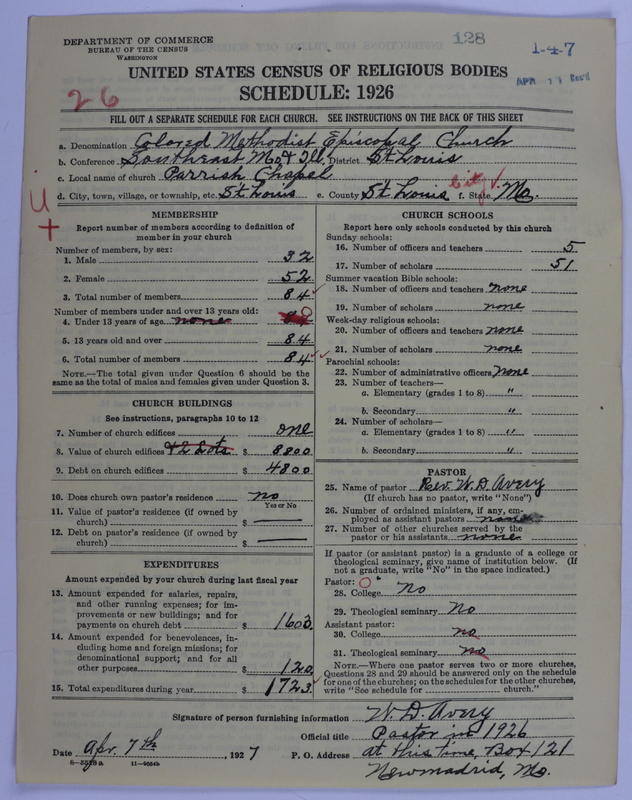 DEPARTMENT OF COMMERCE
BUREAU OF THE CENSUS
WASHINGTON
128
1-4-7
UNITED STATES CENSUS OF RELIGIOUS BODIES
SCHEDULE: 1926
26
FILL OUT A SEPARATE SCHEDULE FOR EACH CHURCH. SEE INSTRUCTIONS ON THE BACK OF THIS SHEET
a. Denomination Colored Methodist Episcopal Church
b. Conference Southeast Mo & Ill District St Louis
c. Local name of church Parrish Chapel
d. City, town, village, or township, etc. St Louis e. County St Louis city f. State Mo.
MEMBERSHIP
Report number of members according to definition of member in your church
Number of members, by sex:
1. Male 32
2. Female 52
3. Total number of members 84
Number of members under and over 13 years old:
4. Under 13 years of age none 0
5. 13 years old and over 84
6. Total number of members 84
NOTE.—The total given under Question 6 should be
same as the total of males and females given under Question 3.
CHURCH BUILDINGS
See instructions, paragraphs 10 to 12
7. Number of church edifices one
8. Value of church edifices +2 Lots $ 8800
9. Debt on church edifices $ 4800
10. Does church own pastor's residence no
Yes or No
11. Value of pastor's residence (if owned by
church) $ —
12. Debt on pastor's residence (if owned by
church) $ —
EXPENDITURES
Amount expended by your church during last fiscal year
13. Amount expended for salaries, repairs,
and other running expenses; for im-
provements or new buildings; and for
payments on church debt $ 1603.
14. Amount expended for benevolences, in-
cluding home and foreign missions; for
denominational support; and for all
other purposes $ 120.
15. Total expenditures during year $ 1723.
CHURCH SCHOOLS
Report here only schools conducted by this church
Sunday schools:
16. Number of officers and teachers 5
17. Number of scholars 51
Summer vacation Bible schools:
18. Number of officers and teachers none
19. Number of scholars none
Week-day religious schools:
20. Number of officers and teachers none
21. Number of scholars none
Parochial schools:
22. Number of administrative officers none
23. Number of teachers—
a. Elementary (grades 1 to 8) "
b. Secondary "
24. Number of scholars—
a. Elementary (grades 1 to 8) "
b. Secondary "
PASTOR
25. Name of pastor Rev. W. D. Avery
(If church has no pastor, write "None")
26. Number of ordained ministers, if any, em-
ployed as assistant pastors none
27. Number of other churches served by the
pastor or his assistants none
If pastor (or assistant pastor) is a graduate of a college or
theological seminary, give name of institution below. (If
not a graduate, write "No" in the space indicated.)
Pastor:
28. College No
29. Theological seminary No
Assistant pastor:
30. College no
31. Theological seminary no
NOTE.—Where one pastor serves two or more churches,
Questions 28 and 29 should be answered only on the schedule
for one of the churches; on the schedules for the other churches,
write "See schedule for church."
Signature of person furnishing information W. D. Avery
Official title Pastor in 1926
Date Apr 7th, 1927 P. O. Address at this time, Box 121
Newmadrid, Mo.